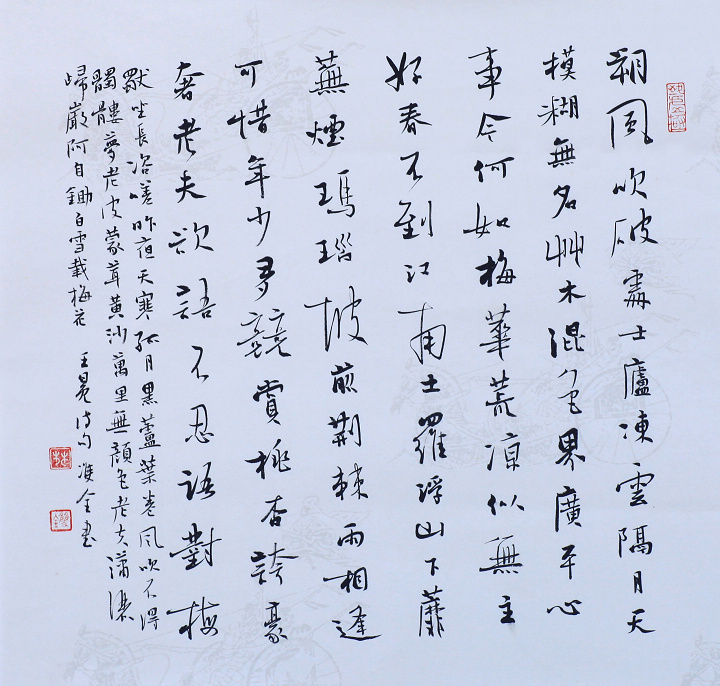 朔風吹破處士廬凍雲隔月天
模糊無名艸木混色界廣平心
事今何如梅華荒涼似無主
好春不到江南土羅浮山下蘼
蕪煙瑪瑙坡前荊棘兩相逢
可惜年少多競賞桃杏誇豪
奢老夫欲語不忍語對梅
獸坐長咨嗟昨夜天寒孤月黑蘆葉卷風吹不得
髑髏夢老皮蒙茸黃沙萬里無顏色老夫瀟灑
歸巖阿自鋤白雪栽梅花
王冕詩句